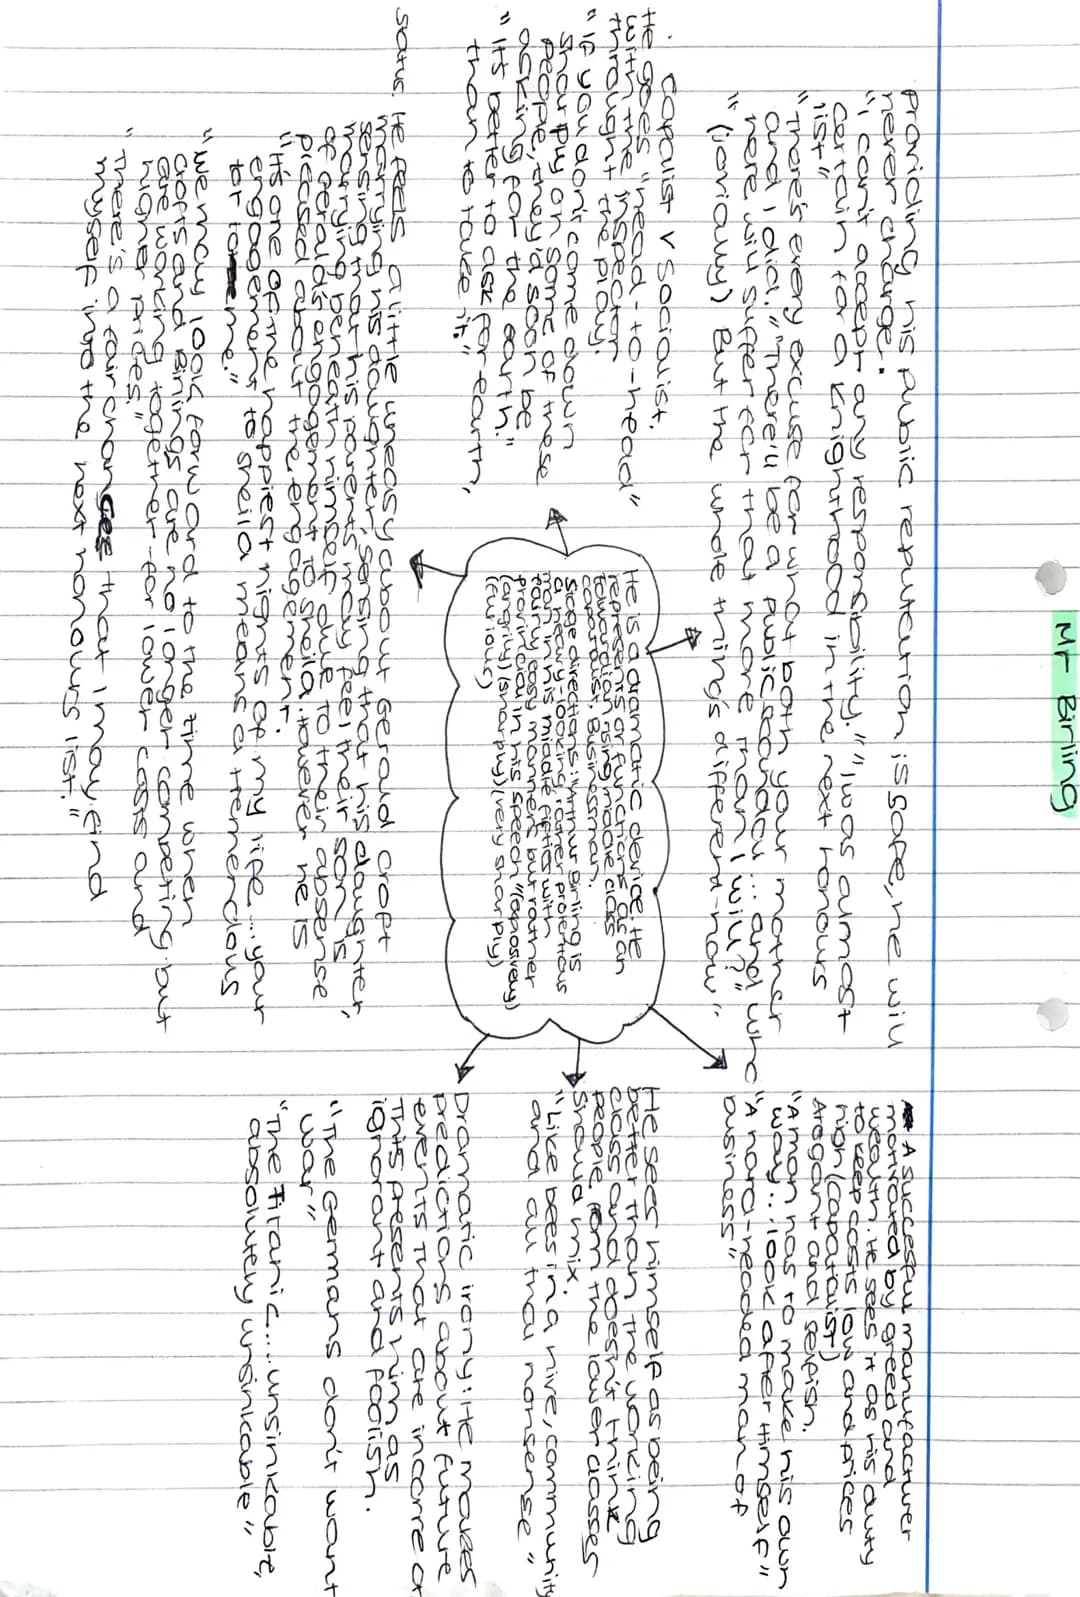 Mr Birling
Providing his public reputation is safe, he will
never change.
"I can't accept any responsibility." "I was almost
certain for a knighthood in the next honours
list"
"There's every excuse for what both your mother
and I did." "There'll be a public scandal... and who
here will suffer for that more than I will?"
"(Jovially) But the whole thing's different now".
Capalist v Socialist.
He goes "head-to-head"
with the inspector
throught the play.
"If you don't come down
sharply on some of these
people, they'd soon be
asking for the earth."
"Its better to ask for earth,
than to take it"
He is a dramatic device. He
represents or functions as an
Edwardian rising middle class
capatalist. Businessman.
Stage directions: "Arthur Birling is
a heavy-looking, rather protentous
man in his middle fifties with
fairly easy manners but rather
provincial in his speech"
(angrily)(sharply)(very sharply)
(furious)
A succesful manufacturer
motivated by greed and
wealth. He sees it as his duty
to keep costs low and prices
high (capatalist)
Arogant and selfish.
"A man has to make his own
way... look after himself"
"A hard-headed man of
business"
He sees himself as being
better than the working
class and doesn't think
people from the lower classes
should mix.
"Like bees in a hive, community
and all that nonsense"
Dramatic irony: He makes
predictions about future
events that are incorrect
This presents him as
ignorant and foolish.
"The Germans don't want
war"
"The Titanic.... unsinkable,
absolutely unsinkable"
He feels a little uneasy about Gerald Croft
marrying his daughter, sensing that his daughter,
sensing that his parents may feel their son is
marrying beneath himself due to their absense
of gerald's engagement to Sheila. However he is
pleased about the engagement.
"It's one of the happiest nights of my life.... your
engagement to Sheila means a tremendous
lot to me."
"We may look forward to the time when
Crofts and Birlings are no longer competing but
are working together - for lower costs and
higher prices."
"There's a fair chances that I may find
myself into the next honours list."